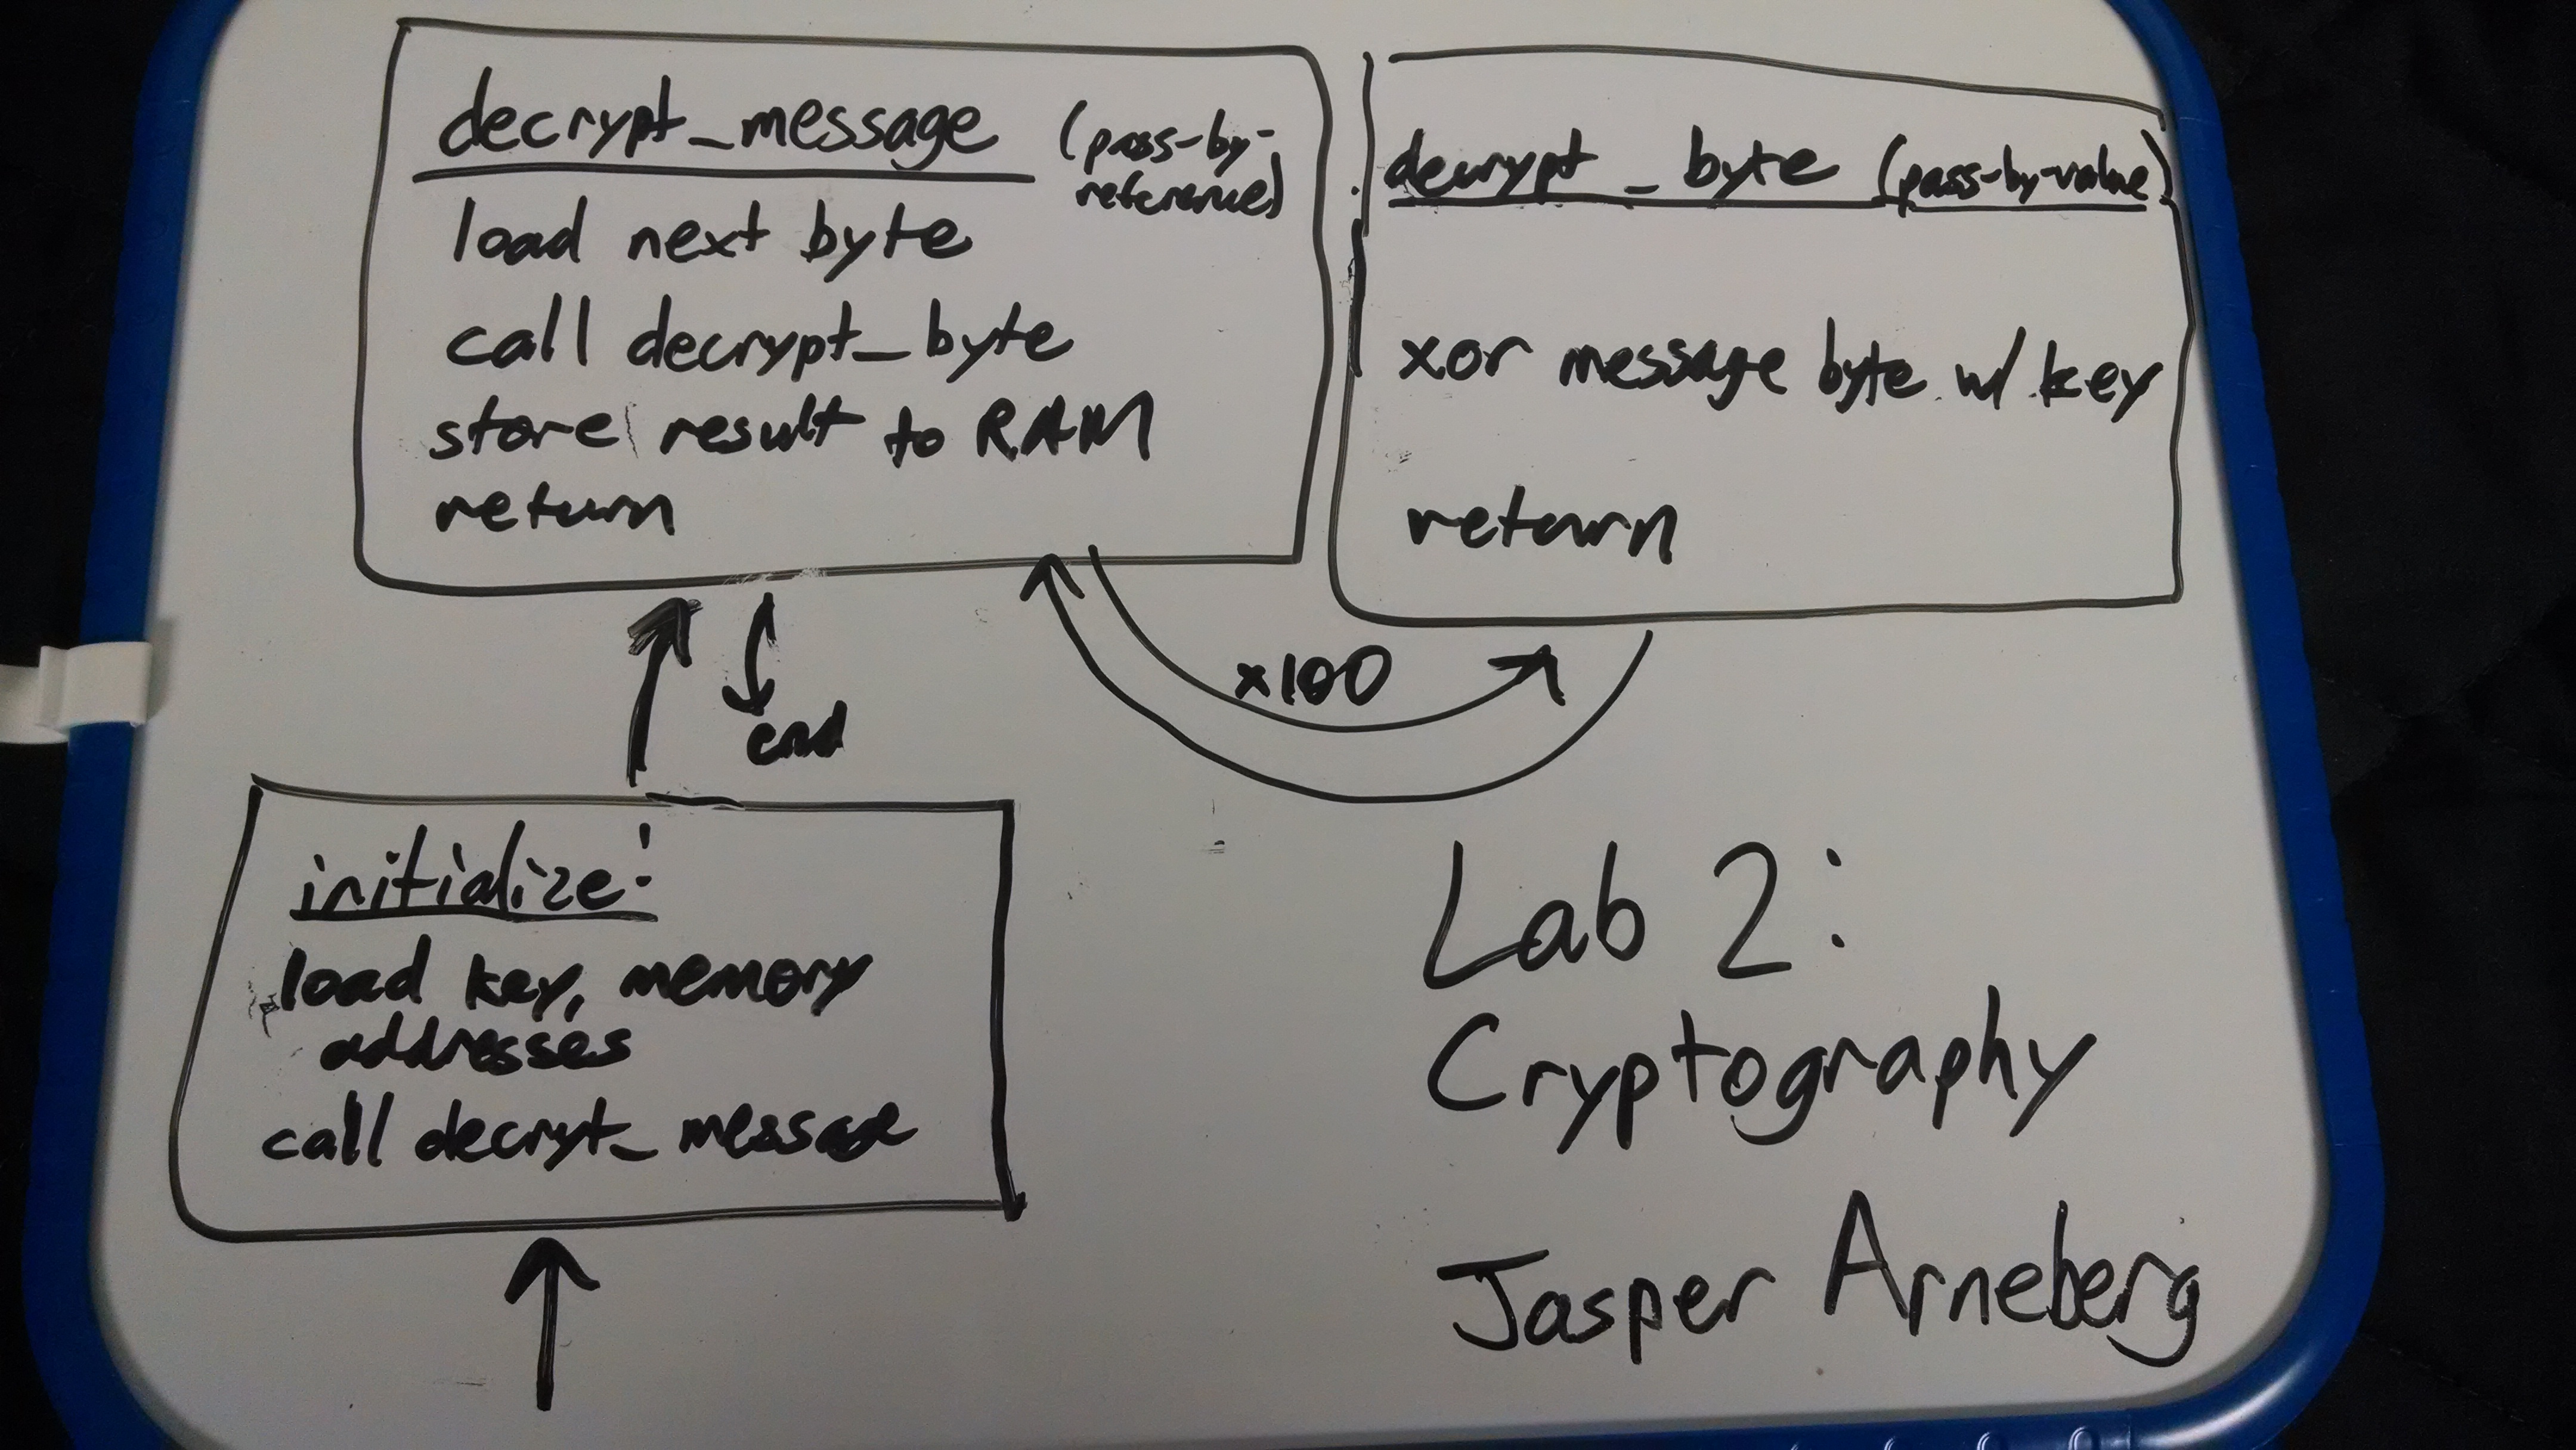 decrypt_message (pass-by-
reference)
load next byte
call decrypt_byte
store result to RAM
return
decrypt_byte (pass-by-value)
xor message byte w/ key
return
x100
end
initialize:
load key, memory
addresses
call decryt_message
Lab 2:
Cryptography
Jasper Arneberg